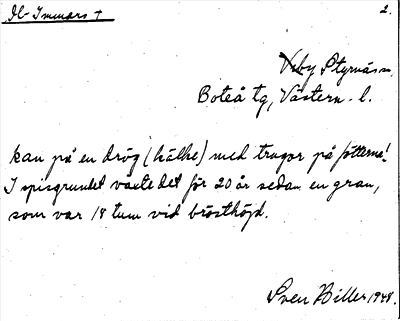 Pl-Immars + 2.
Viby Styrnäs sn,
Boteå tg, Västern. l.
kan på en drög (hälke) med trugor på fötterna!
I spisgrundet växte det för 20 år sedan en gran,
som var 18 tum vid brösthöjd.
Sven Hiller 1948.